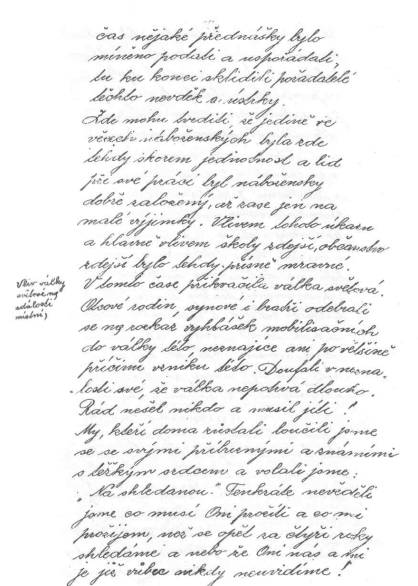 čas nějaké přednášky bylo
míněno podati a uspořádali,
tu ku konci sklidili pořadatelé
těchto nevděk a ústrky.
Zde mohu tvrditi, že jedině ve
věcech náboženských byla zde
tehdy skorem jednotnost a lid
při své práci byl nábožensky
dobře založený, až zase jen na
malé výjimky. Vlivem tohoto úkazu
a hlavně vlivem školy zdejší, občanstvo
zdejší bylo tehdy přísně mravné.
Vliv války
světové na
události
místní,
V tomto čase přikvačila válka světová.
Otcové rodin, synové i bratři odebrali
se na rozkaz vyhlášek mobilisačních
do války této, neznajíce ani po většině
příčinu vzniku této. Doufali v nezna-
losti své, že válka nepotrvá dlouho.
Rád nešel nikdo a musil jíti!
My, kteří doma zůstali loučili jsme
se se svými příbuznými a známými
s těžkým srdcem a volali jsme:
"Na shledanou." Tenkráte nevěděli
jsme co musí Oni prožíti a co mi
prožijem, než se opět za čtyři roky
shledáme a nebo že Oni nás a mi
je již vůbec nikdy neuvidíme!